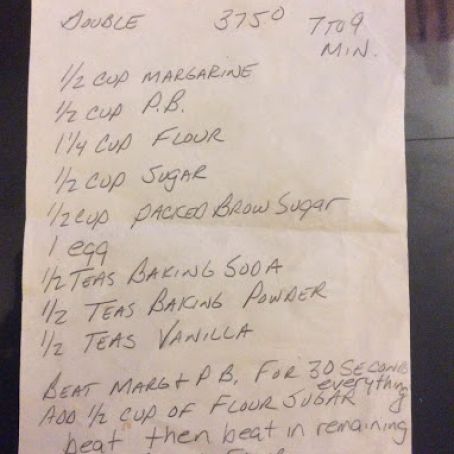 DOUBLE 375° 7 TO 9
MIN.
1/2 CUP MARGARINE
1/2 CUP P.B.
1 1/4 CUP FLOUR
1/2 CUP SUGAR
1/2 CUP PACKED BROW SUGAR
1 egg
1/2 TEAS BAKING SODA
1/2 TEAS BAKING POWDER
1/2 TEAS VANILLA
BEAT MARG + P.B. FOR 30 SECONDS
ADD 1/2 CUP OF FLOUR SUGAR everything
beat then beat in remaining